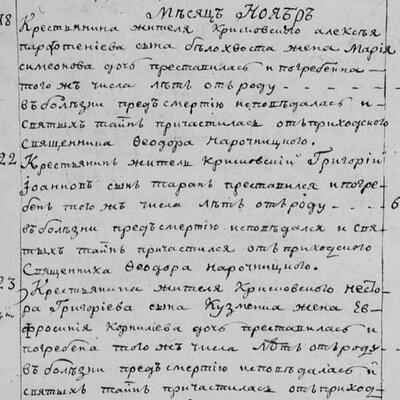 Мѣсяцъ Ноябрь
18 Крестьянина жителя Крисовского алексѣя
парфтениева сына бѣлохвоста жена Марія
симеонова дочь преставилась и погребенна
того жъ числа лѣтъ отъ роду
въ болѣзни предъ смертію исповѣдалась и
святыхъ таинъ причастилась отъ приходского
священника Феодора Нарочницкого.
22 Крестьянинъ житель Крисовскій Григорій
Іоанновъ сынъ таранъ преставился и погре-
бенъ того жъ числа лѣтъ отъ роду 6
въ болѣзни предъ смертію исповѣдался и свя-
тыхъ таинъ причастился отъ приходского
Священника Феодора Нарочницкого.
23 Крестьянина жителя Крисовского несто-
ра Григоріева сына Кузменка жена Ев-
фросинія Корнилиева дочь преставилась и
погребена того жъ числа лѣтъ отъ роду
въ болѣзни предъ смертію исповѣдалась и
святыхъ таинъ причастилась отъ приход-